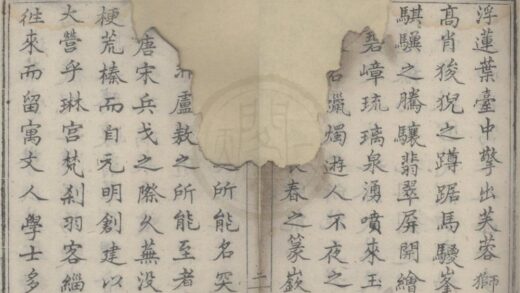 浮蓮葉臺中擎出芙蓉獅
高肖狻猊之蹲踞馬騣峯
騏驥之騰驤翡翠屏開繪
碧嶂琉璃泉湧噴來玉
石蠟燭遊人不夜之
春之篆嶔
二
之所能名突
盧敖之所能至者
唐宋兵戈之際久蕪没
梗荒榛而自元明創建以
大營乎琳宮梵刹羽客緇
徃來而留寓文人學士多